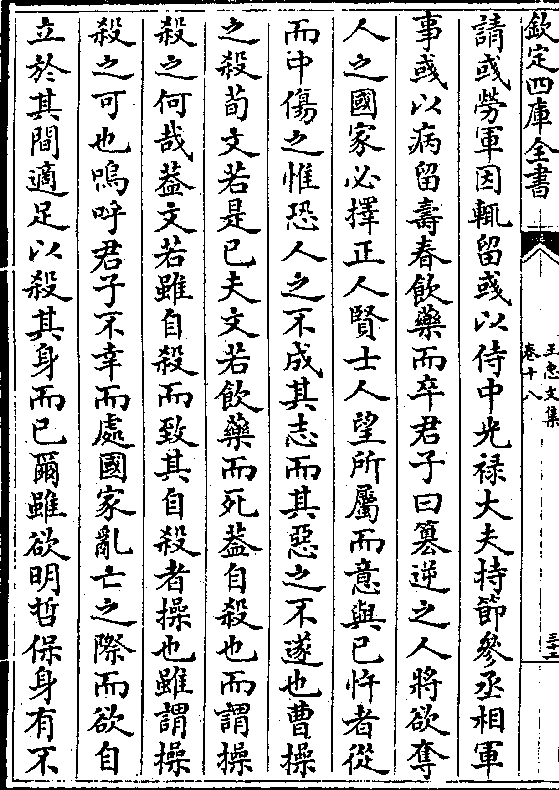 欽定四庫全書
王忠文集
卷十八
三十二
請彧勞軍因輒留彧以侍中光禄大夫持節參丞相軍
事彧以病留壽春飲藥而卒君子曰簒逆之人將欲奪
人之國家必擇正人賢士人望所屬而意與已忤者從
而中傷之惟恐人之不成其志而其惡之不遂也曹操
之殺荀文若是已夫文若飲藥而死葢自殺也而謂操
殺之何哉葢文若雖自殺而致其自殺者操也雖謂操
殺之可也嗚呼君子不幸而處國家亂亡之際而欲自
立於其間適足以殺其身而已爾雖欲明哲保身有不